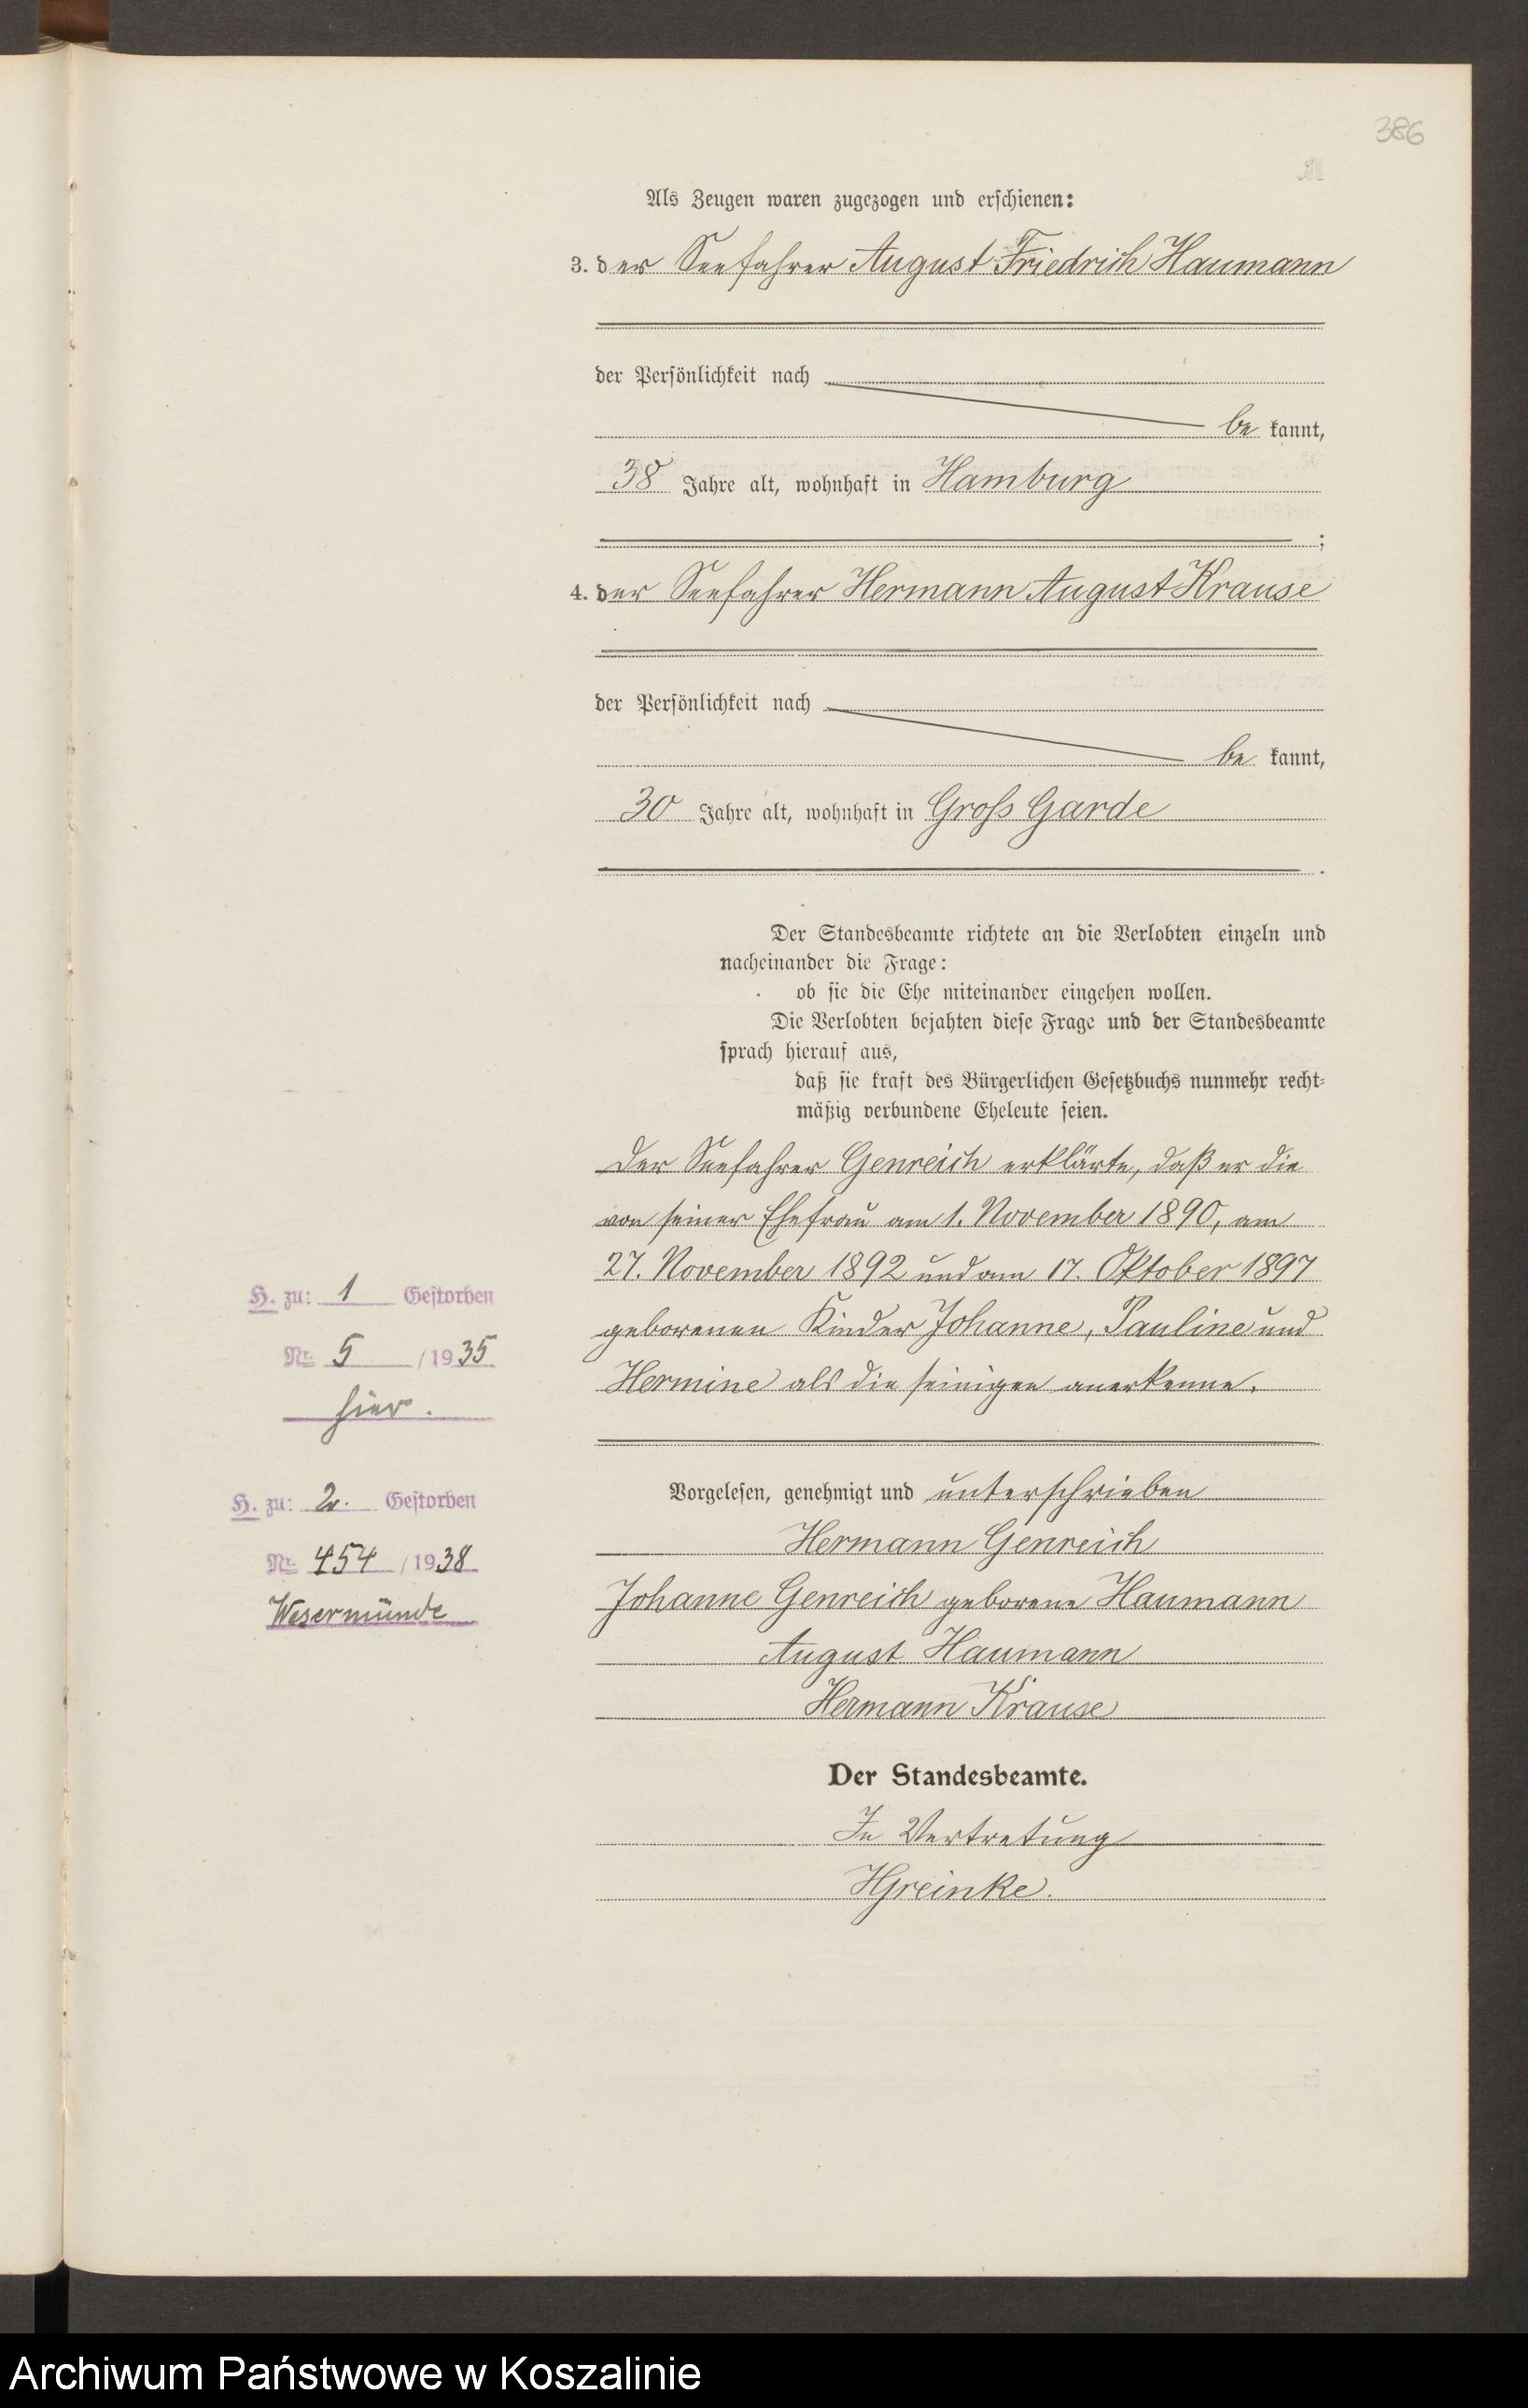 386
Als Zeugen waren zugezogen und erschienen:
3. der Seefahrer August Friedrich Haumann
der Persönlichkeit nach
be kannt,
38 Jahre alt, wohnhaft in Hamburg
;
4. der Seefahrer Hermann August Krause
der Persönlichkeit nach
be kannt,
30 Jahre alt, wohnhaft in Groß Garde
.
Der Standesbeamte richtete an die Verlobten einzeln und
nacheinander die Frage:
ob sie die Ehe miteinander eingehen wollen.
Die Verlobten bejahten diese Frage und der Standesbeamte
sprach hierauf aus,
daß sie kraft des Bürgerlichen Gesetzbuchs nunmehr recht-
mäßig verbundene Eheleute seien.
Der Seefahrer Genreich erklärte, daß er die
von seiner Ehefrau am 1. November 1890, am
27. November 1892 und am 17. Oktober 1897
geborenen Kinder Johanne, Pauline und
Hermine als die seinigen anerkenne.
Vorgelesen, genehmigt und unterschrieben
Hermann Genreich
Johanne Genreich geborene Haumann
August Haumann
Hermann Krause
Der Standesbeamte.
In Vertretung
HGreinke.
H. zu: 1 Gestorben
Nr. 5 /1935
hier.
H. zu: 2. Gestorben
Nr. 454 /1938
Wesermünde
Archiwum Państwowe w Koszalinie